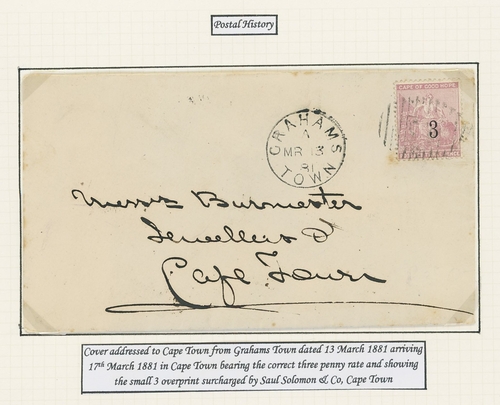 Postal History
CAPE OF GOOD HOPE
3
GRAHAMS
A
MR 13
81
TOWN
Messrs Burmester
Jewellers &
Cape Town
Cover addressed to Cape Town from Grahams Town dated 13 March 1881 arriving
17th March 1881 in Cape Town bearing the correct three penny rate and showing
the small 3 overprint surcharged by Saul Solomon & Co, Cape Town